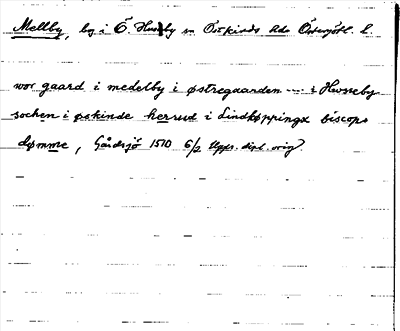 Mellby, by i Ö. Husby sn Östkinds hd Östergötl. l.
wor gaard i medelby i østregaarden --- i Husseby
sochen i øskinde herret i Lindkøppingx biscops
dømme, Gårdsjö 1510 6/2 Upps. dipl. orig.